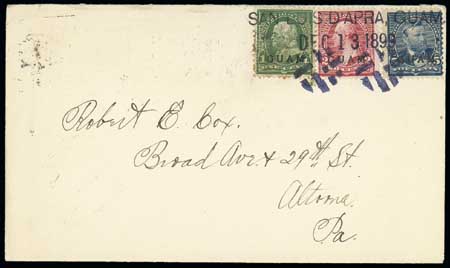 SAN LUIS D'APRA, GUAM.
DEC 13 1899
GUAM GUAM GUAM
Robert E. Cox.
Broad Ave & 29th St.
Altoona.
Pa.